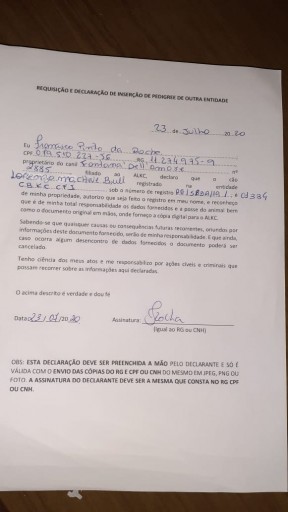 REQUISIÇÃO E DECLARAÇÃO DE INSERÇÃO DE PEDIGREE DE OUTRA ENTIDADE
23 de Julho 20 20
Eu Francisco Pinto da Rocha
CPF RG
proprietário do canil Fontana Dell amore nº
filiado ao ALKC, declaro que o cão
Bull registrado na entidade
sob o número de registro
de minha propriedade, autorizo que seja feito o registro em meu nome, e reconheço
que é de minha total responsabilidade os dados fornecidos e a posse do animal bem
como o documento original em mãos, onde forneço a cópia digital para a ALKC.
Sabendo se que quaisquer causas ou consequências futuras recorrentes, oriundos por
informações deste documento fornecido, serão de minha responsabilidade. E que ainda,
caso ocorra algum desencontro de dados fornecidos o documento poderá ser
cancelado.
Tenho ciência dos meus atos e me responsabilizo por ações cíveis e criminais que
possam recorrer sobre as informações aqui declaradas.
O acima descrito é verdade e dou fé
Data: 23/07/2020 Assinatura: Rocha
(Igual ao RG ou CNH)
OBS: ESTA DECLARAÇÃO DEVE SER PREENCHIDA A MÃO PELO DECLARANTE E SÓ É
VÁLIDA COM O ENVIO DAS CÓPIAS DO RG E CPF OU CNH DO MESMO EM JPEG, PNG OU
FOTO. A ASSINATURA DO DECLARANTE DEVE SER A MESMA QUE CONSTA NO RG CPF
OU CNH.